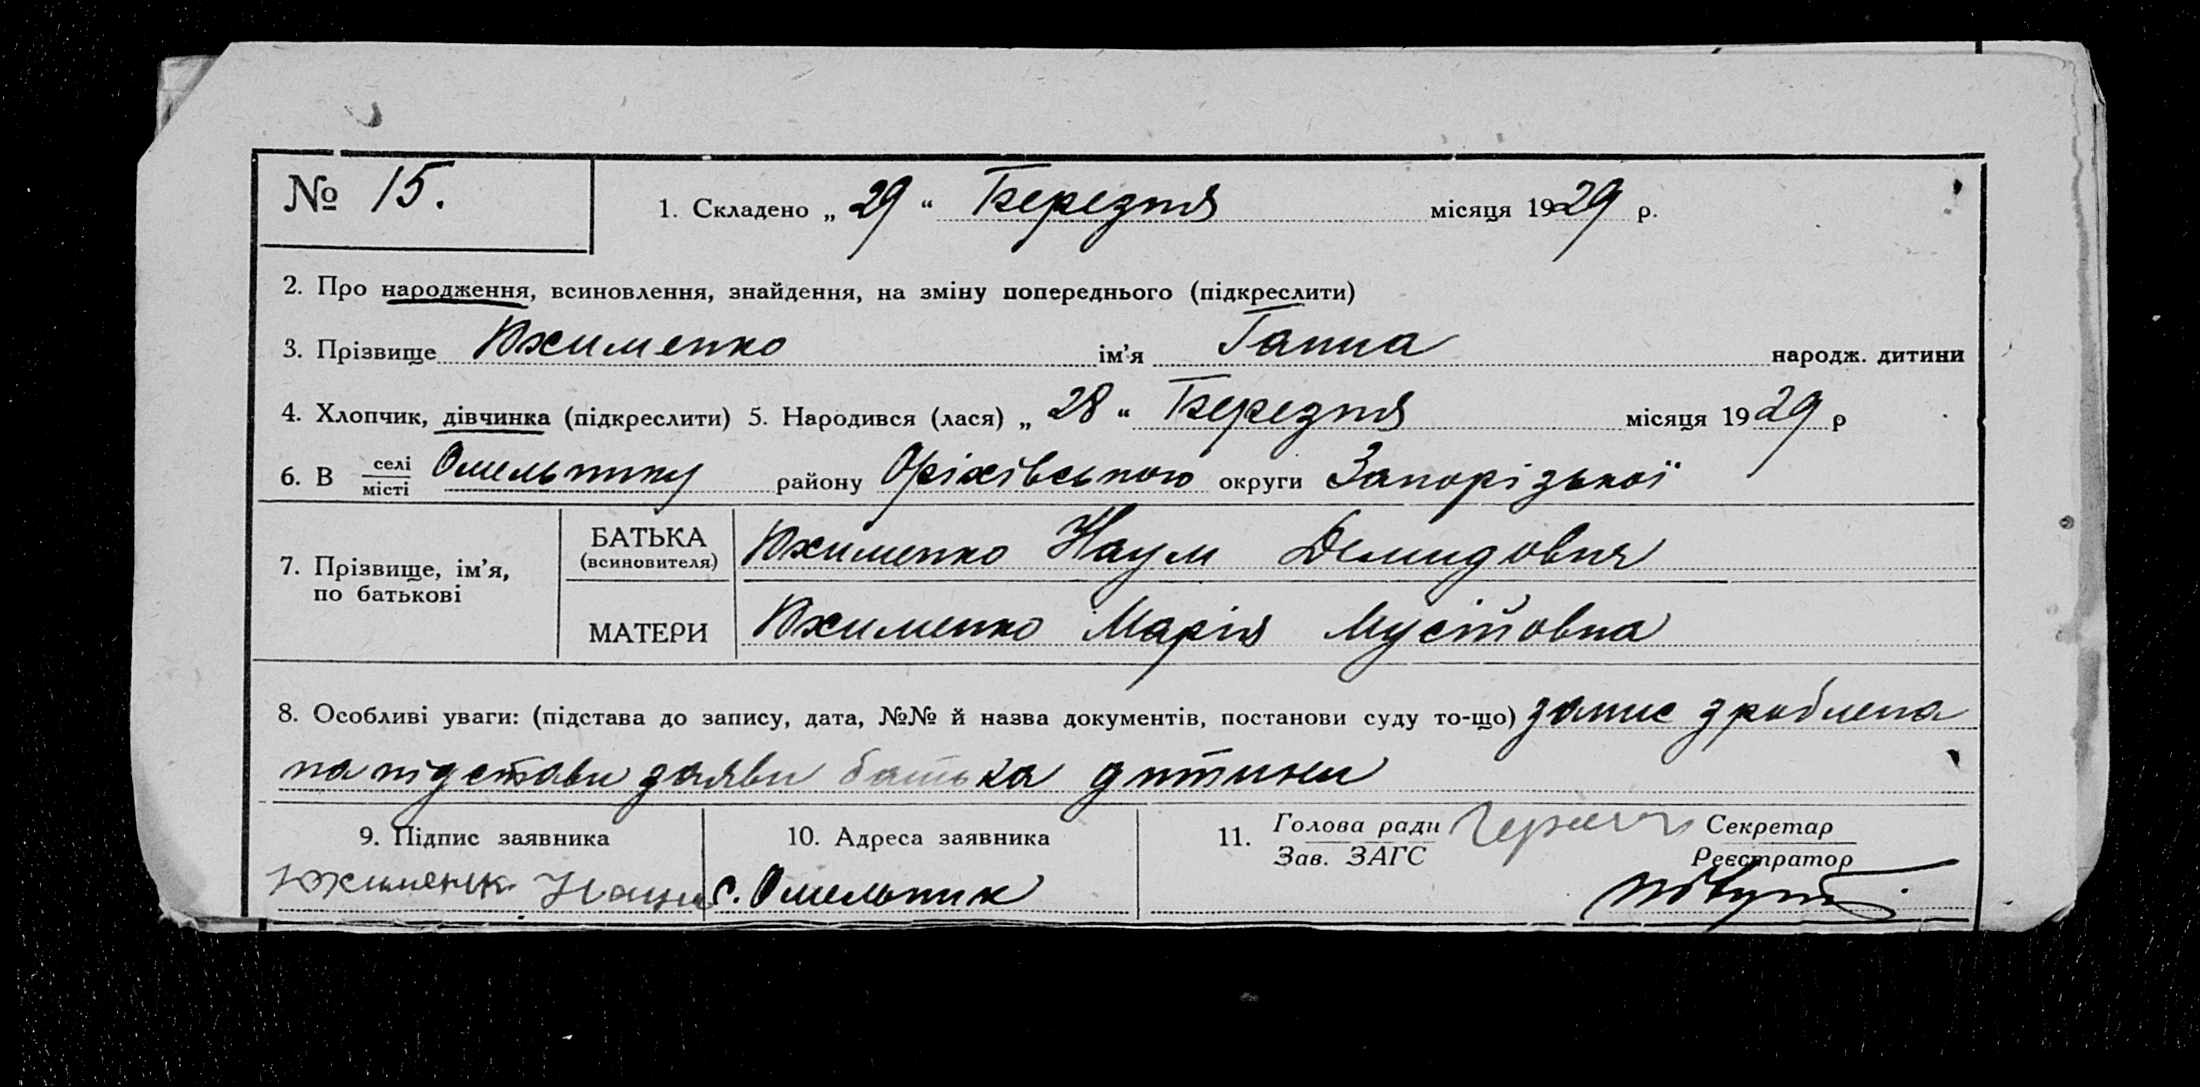 № 15.
1. Складено „ 29 “ Березня місяця 1929 р.
2. Про народження, всиновлення, знайдення, на зміну попереднього (підкреслити)
3. Прізвище Юхименко ім’я Ганна народж. дитини
4. Хлопчик, дівчинка (підкреслити) 5. Народився (лася) „ 28 “ Березня місяця 1929 р
6. В селі Омельнику району Оріхівського округи Запорізької
місті
7. Прізвище, ім’я, по батькові
БАТЬКА (всиновителя) Юхименко Наум Демидович
МАТЕРИ Юхименко Марія Мусійовна
8. Особливі уваги: (підстава до запису, дата, №№ й назва документів, постанови суду то-що) запис зроблена
на підстави заяви батька дитини
9. Підпис заявника
Юхименк Наум
10. Адреса заявника
с. Омельник
11. Голова ради
Зав. ЗАГС
Секретар
Реєстратор